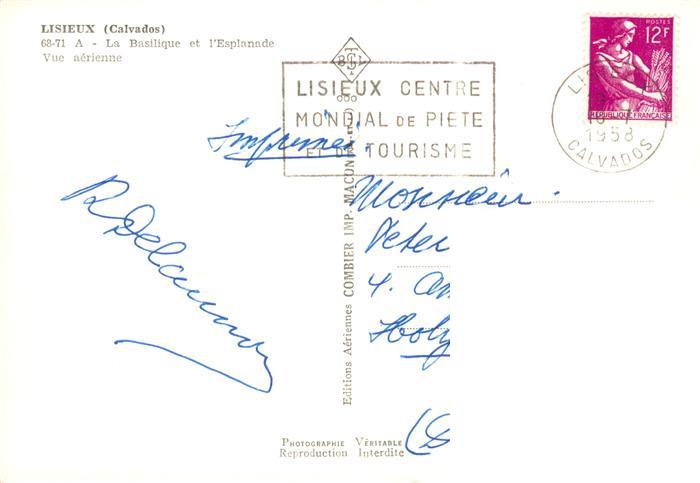 LISIEUX (Calvados)
68-71 A - La Basilique et l'Esplanade
Vue aérienne
LISIEUX CENTRE
MONDIAL DE PIETE
ET DE TOURISME
POSTES
12F
REPUBLIQUE FRANÇAISE
1958
CALVADOS
Imprimé
Monsieur
Peter
4.
R Delaunay
Editions Aériennes COMBIER IMP. MACON
PHOTOGRAPHIE VÉRITABLE
Reproduction Interdite